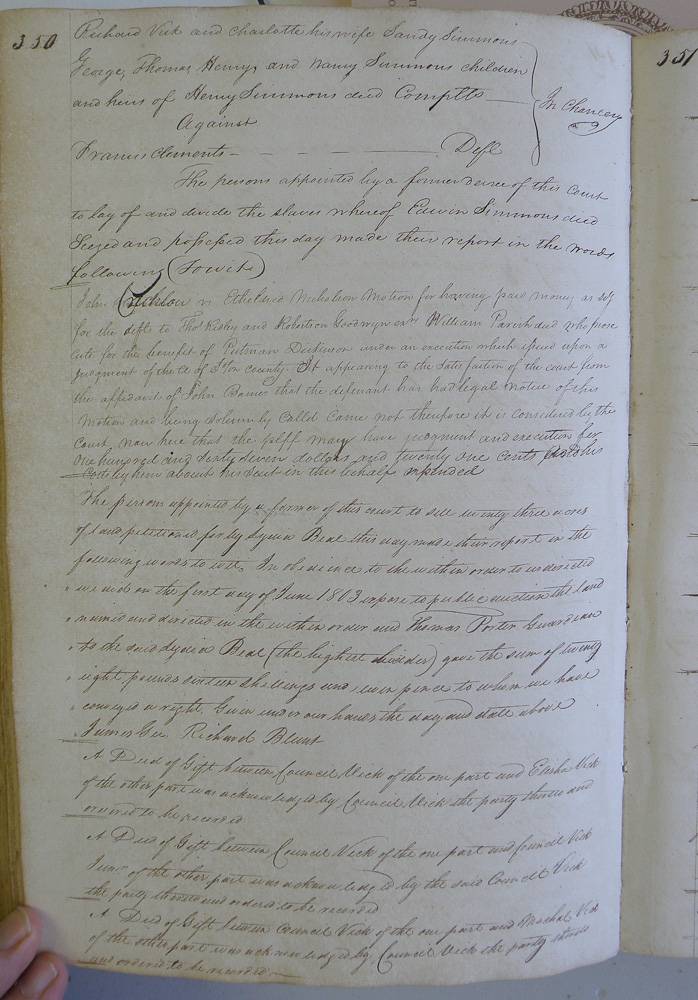 350
Richard Vick and Charlotte his wife Sandy Simmons
George, Thomas, Henry, and Nancy Simmons children
and heirs of Henry Simmons decd Complts
In Chancery
Against
Francis Clements Deft
The persons appointed by a former decree of this Court
to lay of and divide the slaves whereof Edwin Simmons died
Seized and possessed this day made their report in the words
following (Towit)
John vs Ethelred Nicholson Motion for having paid money as sety
for the deft to Thos Ridley and Robertson Goodwyn exrs William Parish decd who prose
cute for the benefit of Putman Dickinson under an execution which issued upon a
Judgment of the Ct of Ston County. It appearing to the satisfaction of the court from
the affidavit of John Barnes that the defendant has had legal notice of this
motion and being solemnly called came not therefore it is considered by the
Court, now here that the pltff may have judgment and execution for
One hundred and sixty seven dollars and twenty one cents and his
Costs by him about his suit in this behalf expended
The persons appointed by a former of this court to sell twenty three acres
of land petitioned for by Lydia Beal this day made their report in the
following words to wit, In obedience to the within order to us directed
we did on the first day of June 1803 expose to public auction the land
named and directed in the within order and Thomas Porter Guardian
to the said Lydia Beal (the highest bidder) gave the sum of twenty
eight pounds sixteen shillings and pence to whom we have
conveyed a right, Given under our hands the day and date above
James Gee Richard Blunt
A Deed of Gift between Council Vick of the one part and Elisha Vick
of the other part was acknowledged by Council Vick the party thereto and
ordered to be recorded
A Deed of Gift between Council Vick of the one part and Council Vick
Junr of the other part was acknowledged by the said Council Vick
the party thereto and ordered to be recorded
A Deed of Gift between Council Vick of the one part and Vick
of the other part was acknowledged by Council Vick the party thereto
and ordered to be recorded
351